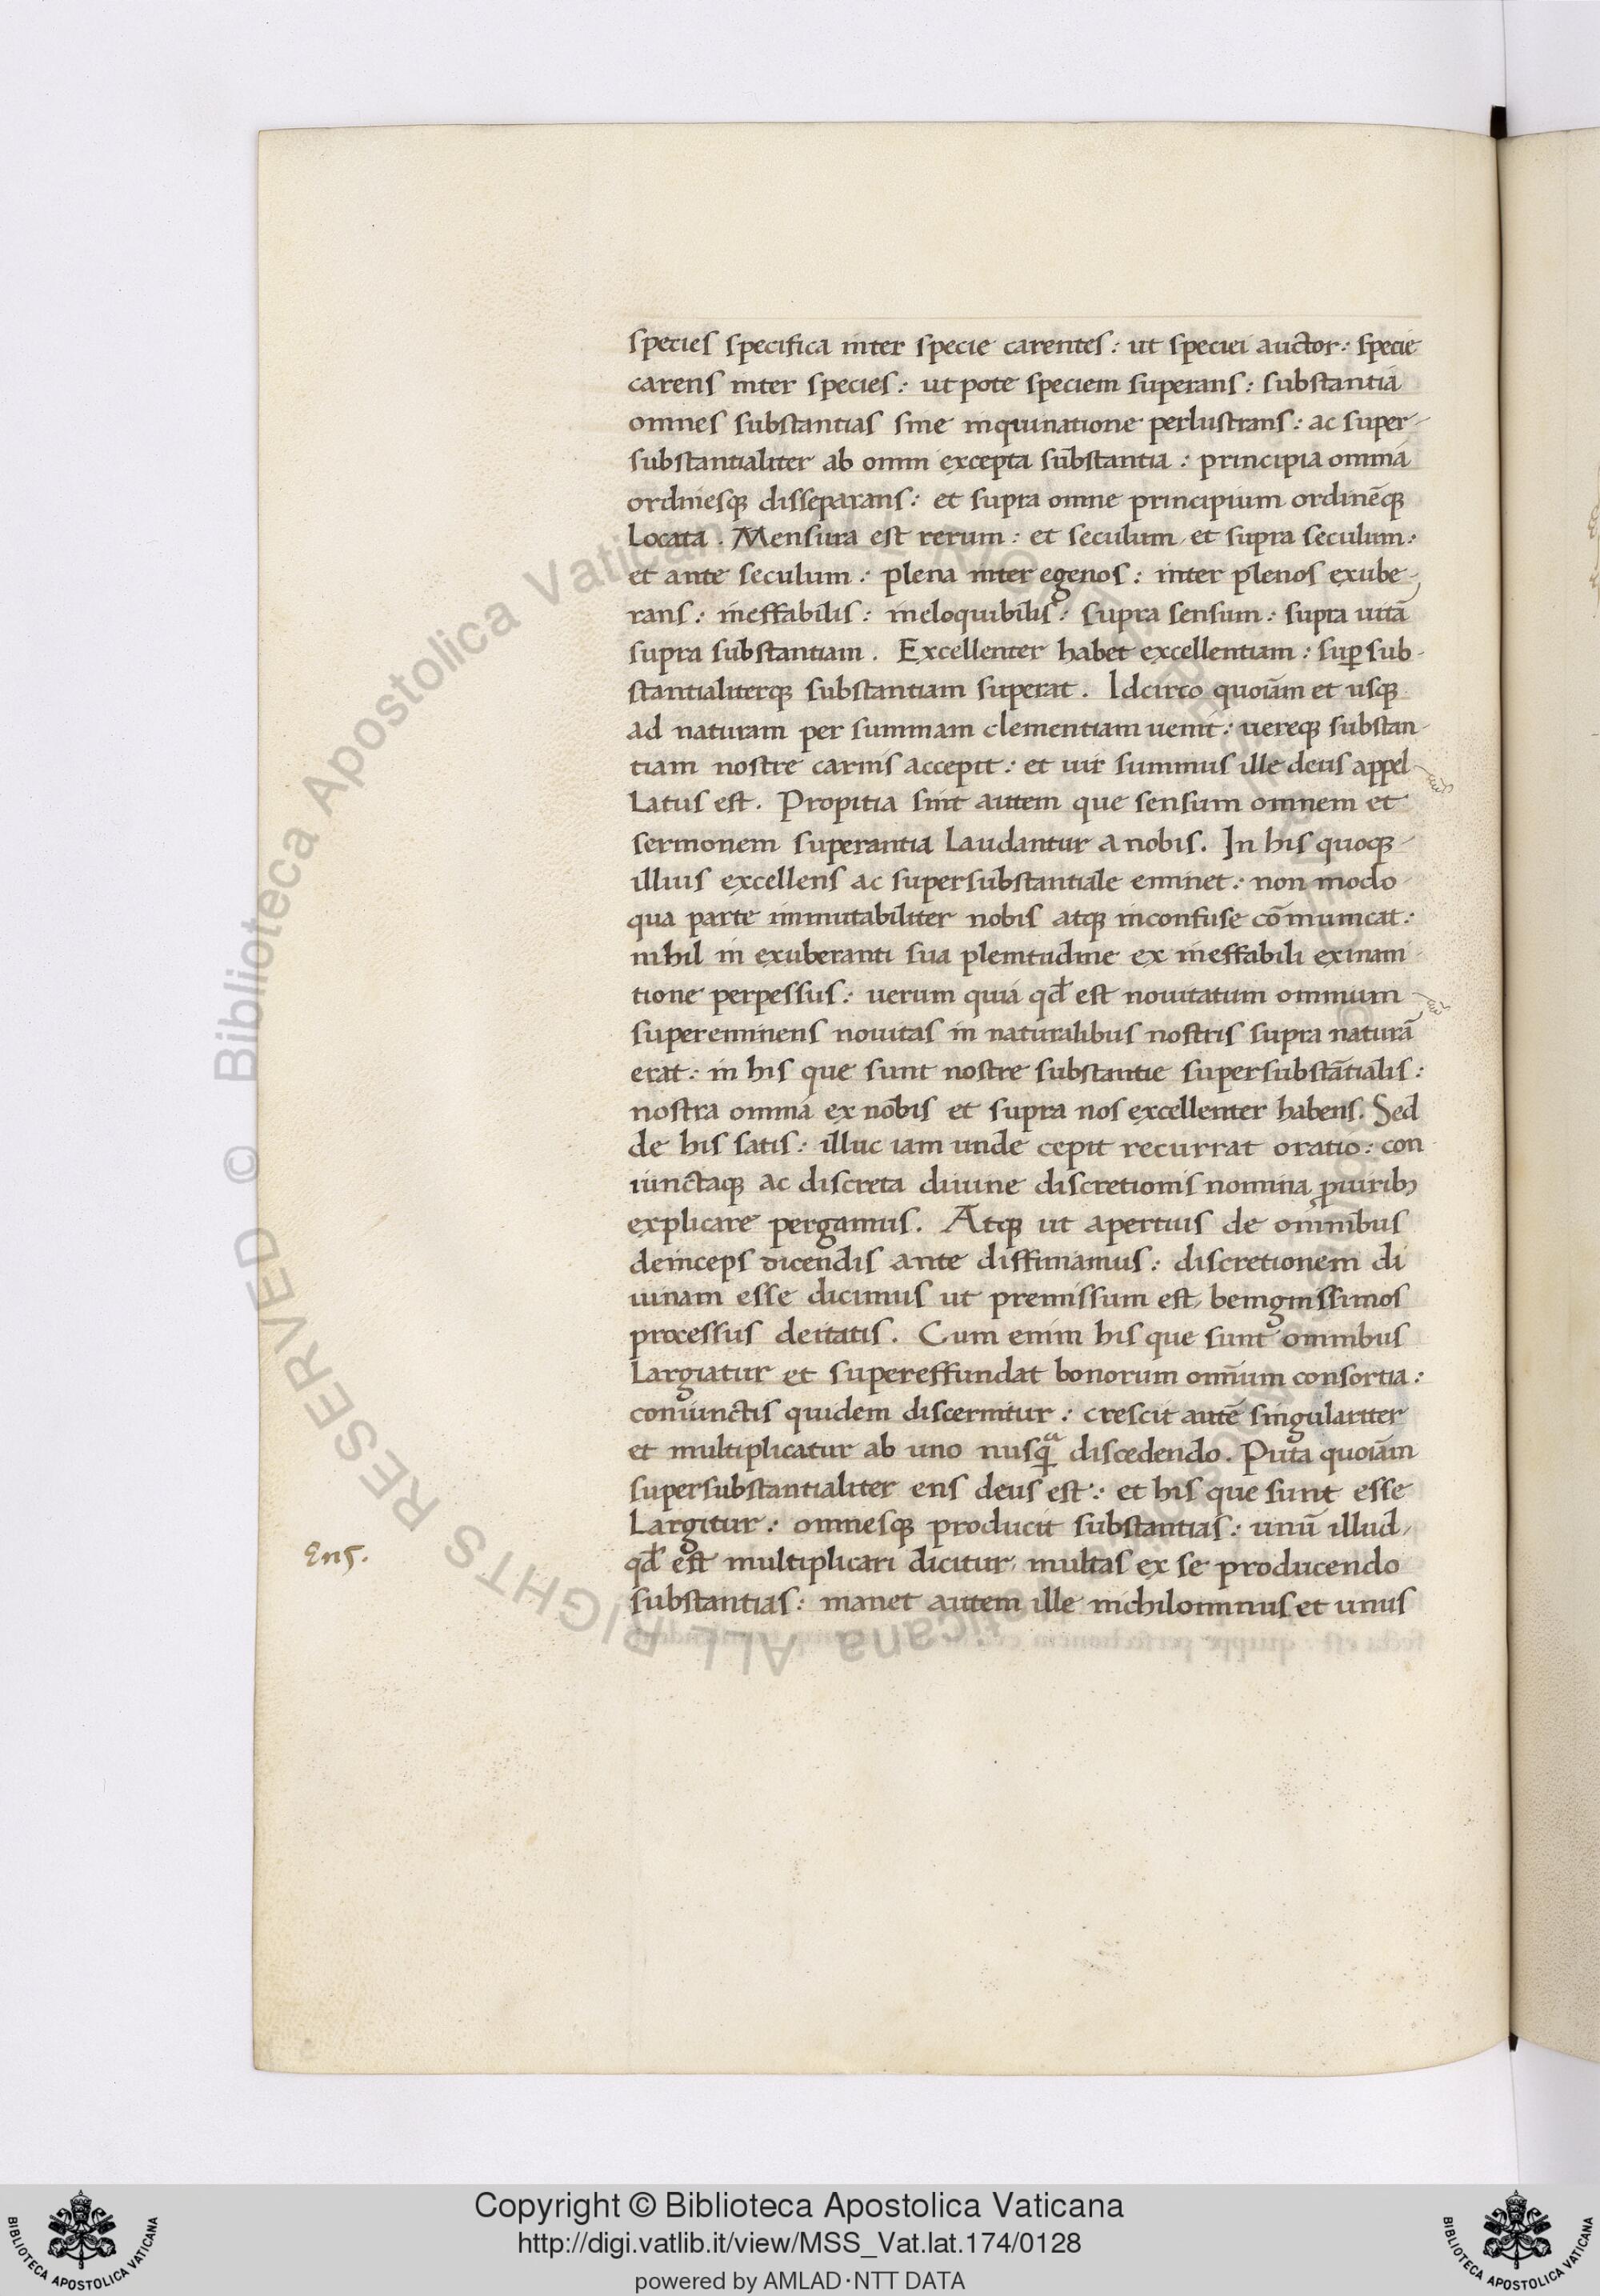 species specifica inter specie carentes: ut speciei auctor: specie
carens inter species: ut pote speciem superans: substantia
omnes substantias sine inquinatione perlustrans: ac super-
substantialiter ab omni excepta substantia: principia omnia
ordinesqꝫ disseparans: et supra omne principium ordinēqꝫ
locata. Mensura est rerum: et seculum, et supra seculum:
et ante seculum: plena inter egenos: inter plenos exube-
rans: ineffabilis: ineloquibilis: supra sensum: supra uitā
supra substantiam. Excellenter habet excellentiam: suꝑsub-
stantialiterqꝫ substantiam superat. Idcirco quoīam et usqꝫ
ad naturam per summam clementiam uenit: uereqꝫ substan-
tiam nostre carnis accepit: et uir summus ille deus appel-
latus est. Propitia sint autem que sensum omnem et
sermonem superantia laudantur a nobis. In his quoqꝫ
illius excellens ac supersubstantiale eminet: non modo
qua parte immutabiliter nobis atqꝫ inconfuse cōmunicat:
nihil in exuberanti sua plenitudine ex ineffabili exinani-
tione perpessus: uerum quia qd̄ est nouitatum omnium
supereminens nouitas in naturalibus nostris supra naturā
erat: in his que sunt nostre substantie supersubstātialis:
nostra omnia ex nobis et supra nos excellenter habens. Sed
de his satis: illuc iam unde cepit recurrat oratio: con-
iunctaqꝫ ac discreta diuine discretionis nomina ꝓuiribꝫ
explicare pergamus. Atqꝫ ut apertius de omnibus
deinceps dicendis ante diffiniamus: discretionem di
uinam esse dicimus ut premissum est, benignissimos
processus deitatis. Cum enim his que sunt omnibus
largiatur et supereffundat bonorum omnium consortia:
coniunctis quidem discernitur: crescit autē singulariter
et multiplicatur ab uno nusqᵃ discedendo. Puta quoīam
supersubstantialiter ens deus est: et his que sunt esse
largitur: omnesqꝫ producit substantias: unū illud,
qd̄ est multiplicari dicitur, multas ex se producendo
Ens.
substantias: manet autem ille nichilominus et unus
Copyright © Biblioteca Apostolica Vaticana
http://digi.vatlib.it/view/MSS_Vat.lat.174/0128
powered by AMLAD·NTT DATA
BIBLIOTECA APOSTOLICA VATICANA
BIBLIOTECA APOSTOLICA VATICANA
© Biblioteca Apostolica Vaticana ALL RIGHTS RESERVED